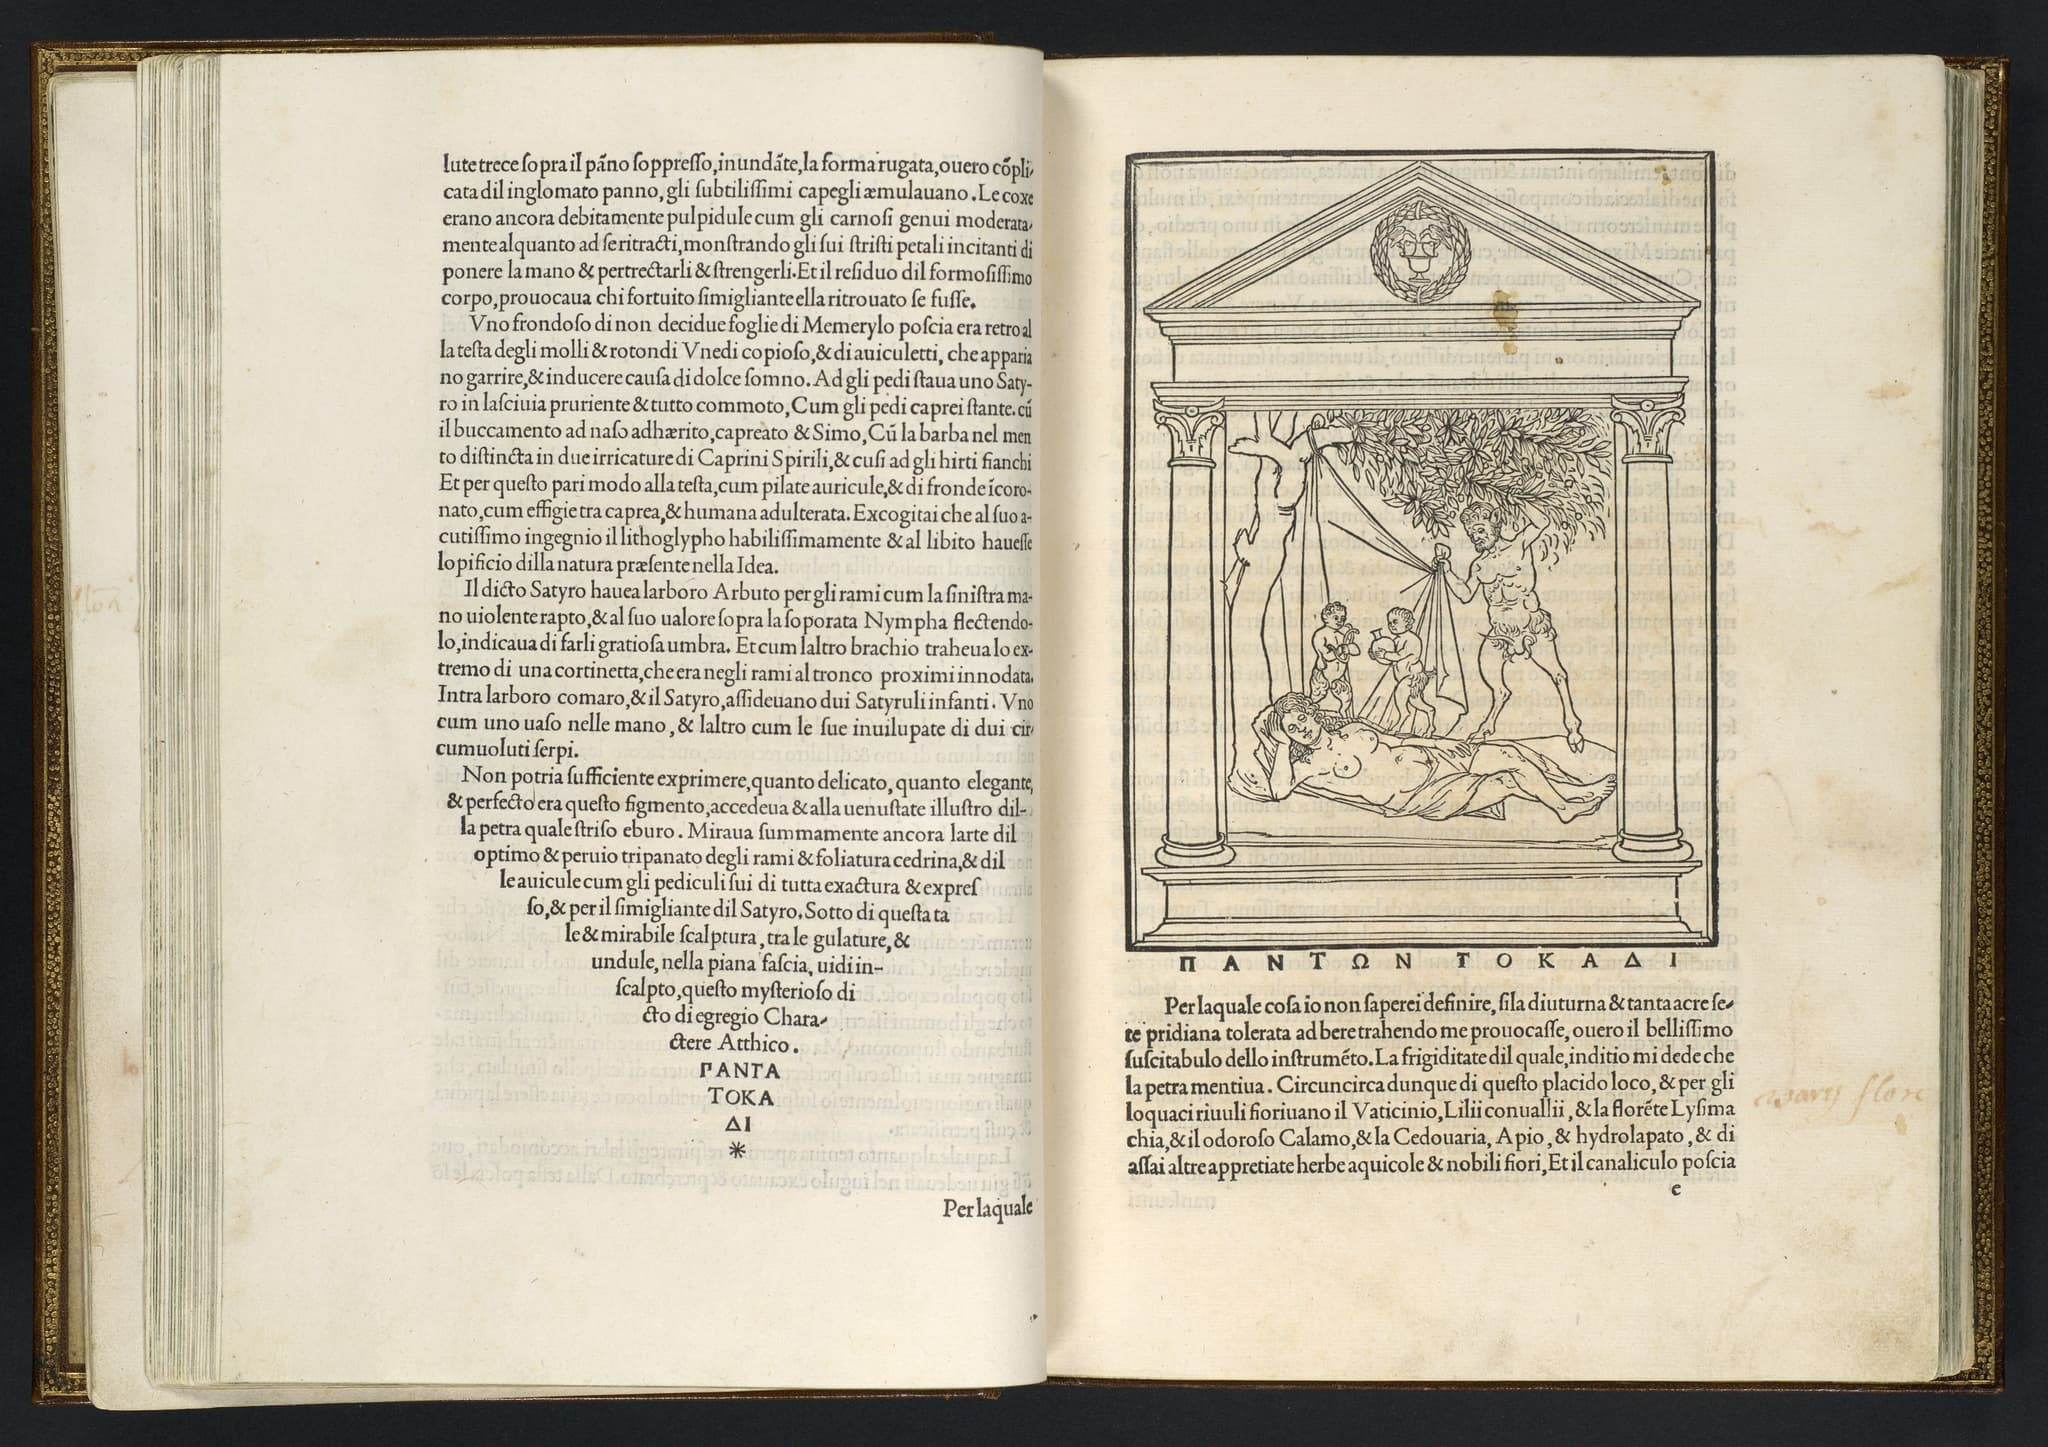 lute trece sopra il pãno soppresso, inundãte, la forma rugata, ouero cõpli-
cata dil inglomato panno, gli subtilissimi capegli æmulauano. Le coxe
erano ancora debitamente pulpidule cum gli carnosi genui moderata-
mente alquanto ad se ritracti, monstrando gli sui stristi petali incitanti di
ponere la mano & pertrectarli & strengerli. Et il residuo dil formosissimo
corpo, prouocaua chi fortuito simigliante ella ritrouato se fusse.
Vno frondoso di non decidue foglie di Memerylo poscia era retro al
la testa degli molli & rotondi Vnedi copioso, & di auiculetti, che apparia
no garrire, & inducere causa di dolce somno. Ad gli pedi staua uno Saty-
ro in lasciuia pruriente & tutto commoto, Cum gli pedi caprei stante. cũ
il buccamento ad naso adhærito, capreato & Simo, Cũ la barba nel men
to distincta in due irricature di Caprini Spirili, & cusi ad gli hirti fianchi
Et per questo pari modo alla testa, cum pilate auricule, & di fronde ĩcoro-
nato, cum effigie tra caprea, & humana adulterata. Excogitai che al suo a-
cutissimo ingegnio il lithoglypho habilissimamente & al libito hauesse
lopificio dilla natura præsente nella Idea.
Il dicto Satyro hauea larboro Arbuto per gli rami cum la sinistra ma-
no uiolente rapto, & al suo ualore sopra la soporata Nympha flectendo-
lo, indicaua di farli gratiosa umbra. Et cum laltro brachio traheua lo ex-
tremo di una cortinetta, che era negli rami al tronco proximi innodata.
Intra larboro comaro, & il Satyro, assideuano dui Satyruli infanti. Vno
cum uno uaso nelle mano, & laltro cum le sue inuilupate di dui cir-
cumuoluti serpi.
Non potria sufficiente exprimere, quanto delicato, quanto elegante,
& perfecto era questo figmento, accedeua & alla uenustate illustro dil-
la petra quale striso eburo. Miraua summamente ancora larte dil
optimo & peruio tripanato degli rami & foliatura cedrina, & dil
le auicule cum gli pediculi sui di tutta exactura & expres
so, & per il simigliante dil Satyro. Sotto di questa ta
le & mirabile scalptura, tra le gulature, &
undule, nella piana fascia, uidi in-
scalpto, questo mysterioso di
cto di egregio Chara-
ctere Atthico.
ΠΑΝΤΑ
ΤΟΚΑ
ΔΙ
*
Per laquale
ΠΑΝΤΩΝ ΤΟΚΑΔΙ
Per laquale cosa io non saperei definire, sila diuturna & tanta acre se-
te pridiana tolerata ad bere trahendo me prouocasse, ouero il bellissimo
suscitabulo dello instrumẽto. La frigiditate dil quale, inditio mi dede che
la petra mentiua. Circuncirca dunque di questo placido loco, & per gli
loquaci riuuli fioriuano il Vaticinio, Lilii conuallii, & la florẽte Lysima
chia, & il odoroso Calamo, & la Cedouaria, Apio, & hydrolapato, & di
assai altre appretiate herbe aquicole & nobili fiori, Et il canaliculo poscia
e